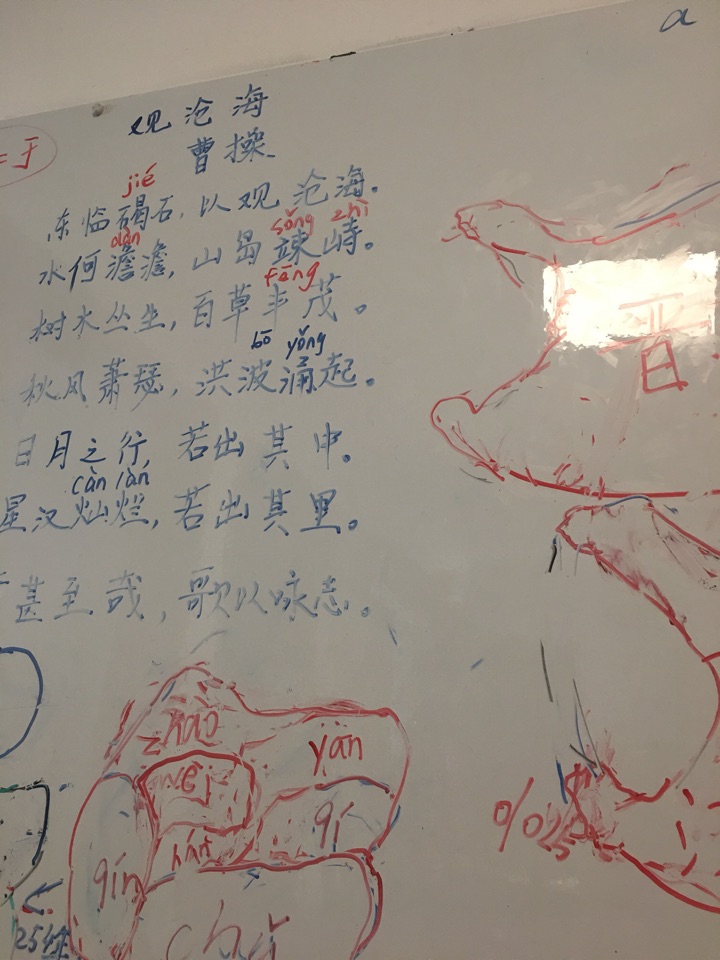 a
观沧海
曹操
jié
东临碣石，以观沧海。
dàn sǒng zhì
水何澹澹，山岛竦峙。
fēng
树木丛生，百草丰茂。
bō yǒng
秋风萧瑟，洪波涌起。
日月之行，若出其中。
càn làn
星汉灿烂，若出其里。
甚至哉，歌以咏志。
晋
zhao
yān
wèi
qí
hán
qín
chǔ
%
25